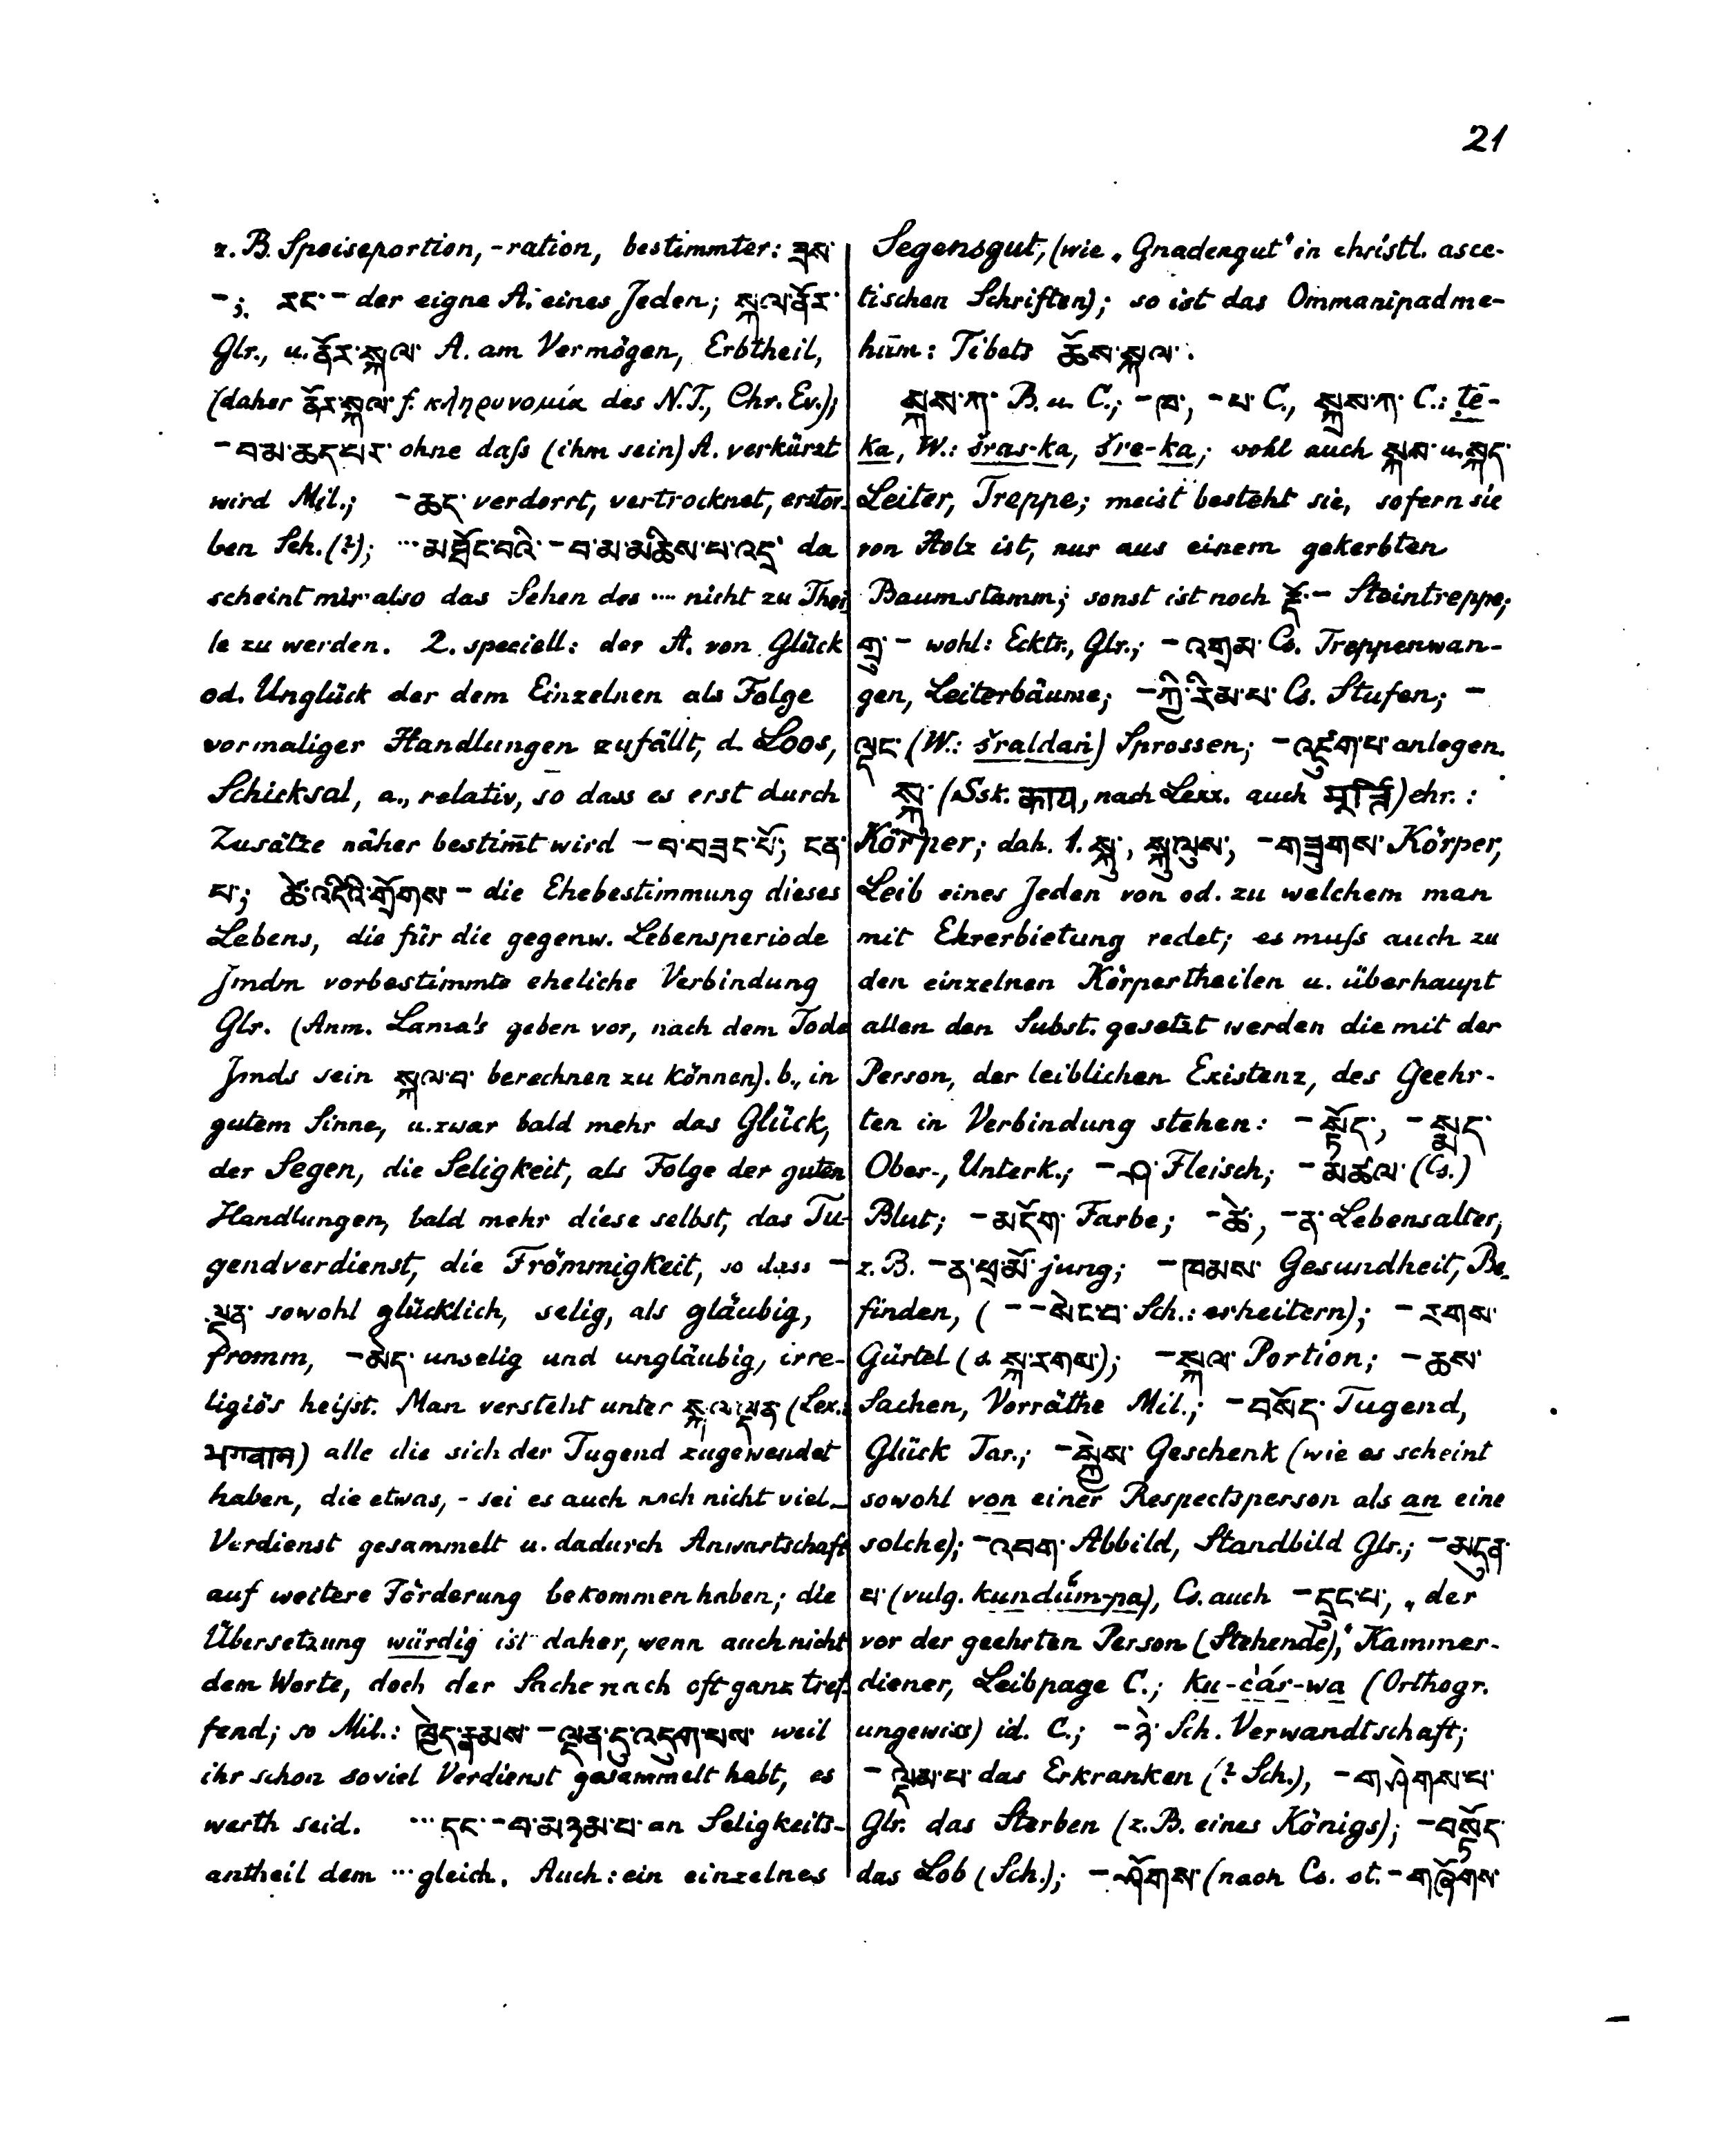 21
z. B. Speiseportion, -ration, bestimmter: ཟས་
-; རང་ - der eigne A. eines Jeden; སྐལ་ནོར་
Glr., u. ནོར་སྐལ་ A. am Vermögen, Erbtheil,
(daher ནོར་སྐལ་ f. κληρονομία des N.T., Chr. Ev.);
- བ་མ་ཆད་པར་ ohne daß (ihm sein) A. verkürzt
wird Mil.; - ཆད་ verdorrt, vertrocknet, erstor-
ben Sch. (?); ... མཐོང་བའི་ - བ་མ་མཆིས་པ་འདྲ་ da
scheint mir also das Sehen des .... nicht zu Thei
le zu werden. 2. speciell: der A. von Glück
od. Unglück der dem Einzelnen als Folge
vormaliger Handlungen zufällt, d. Loos,
Schicksal, a., relativ, so dass es erst durch
Zusätze näher bestim̄t wird - བ་བཟང་པོ; ངན་
པ་; ཚེ་འདིའི་གྲོགས་ - die Ehebestimmung dieses
Lebens, die für die gegenw. Lebensperiode
Jmdm vorbestimmte eheliche Verbindung
Glr. (Anm. Lama's geben vor, nach dem Tode
Jmds sein སྐལ་བ་ berechnen zu können). b., in
gutem Sinne, u. zwar bald mehr das Glück,
der Segen, die Seligkeit, als Folge der guten
Handlungen, bald mehr diese selbst, das Tu-
gendverdienst, die Frömmigkeit, so dass -
ལྡན་ sowohl glücklich, selig, als gläubig,
fromm, - མེད་ unselig und ungläubig, irre-
ligiös heißt. Man versteht unter སྐལ་ལྡན་ (Lex.:
भगवान) alle die sich der Tugend zugewendet
haben, die etwas, - sei es auch noch nicht viel -
Verdienst gesammelt u. dadurch Anwartschaft
auf weitere Förderung bekommen haben; die
Übersetzung würdig ist daher, wenn auch nicht
dem Worte, doch der Sache nach oft ganz tref-
fend; so Mil.: ཁྱེད་རྣམས་ - ལྡན་དུ་འདུག་པས་ weil
ihr schon soviel Verdienst gesammelt habt, es
werth seid. ... དང་ - བ་མཉམ་པ་ an Seligkeits-
antheil dem ... gleich. Auch: ein einzelnes
Segensgut, (wie „Gnadengut“ in christl. asce-
tischen Schriften); so ist das Ommanipadme-
hūm: Tibets ཆོས་སྐལ་.
སྐས་ཀ་ B. u. C.; - ཁ་, - པ་ C., སྐྲས་ཀ་ C.: tē-
ka, W.: šras-ka, šre-ka; wohl auch སྐས་ u. སྐད་
Leiter, Treppe; meist besteht sie, sofern sie
von Holz ist, nur aus einem gekerbten
Baumstamm; sonst ist noch རྡོ་ - Steintreppe;
གྲུ་ - wohl: Ecktr., Glr.; - འགྲམ་ Cs. Treppenwan-
gen, Leiterbäume; - ཀྱི་རིམ་པ་ Cs. Stufen; -
ལྡང་ (W.: šraldaṅ) Sprossen; - འཛུག་པ་ anlegen.
སྐུ་ (Ssk. काय, nach Lexx. auch मूर्त्ति) ehr.:
Körper; dah. 1. སྐུ་, སྐུ་ལུས་, - གཟུགས་ Körper,
Leib eines Jeden von od. zu welchem man
mit Ehrerbietung redet; es muß auch zu
den einzelnen Körpertheilen u. überhaupt
allen den Subst. gesetzt werden die mit der
Person, der leiblichen Existenz, des Geehr-
ten in Verbindung stehen: - སྟོད་, - སྨད་
Ober-, Unterk.; - ཤ་ Fleisch; - མཚལ་ (Cs.)
Blut; - མདོག་ Farbe; - ཚེ་, - ན་ Lebensalter,
z. B. - ན་ཕྲ་མོ་ jung; - ཁམས་ Gesundheit, Be-
finden, ( - - སེང་བ་ Sch.: erheitern); - རགས་
Gürtel (s སྐ་རགས་); - སྐལ་ Portion; - ཆས་
Sachen, Vorräthe Mil.; - བསོད་ Tugend,
Glück Tar.; - སྐྱེས་ Geschenk (wie es scheint
sowohl von einer Respectsperson als an eine
solche); - འབག་ Abbild, Standbild Glr.; - མདུན་
པ་ (vulg. kundū́m-pa), Cs. auch - དྲུང་པ་, „der
vor der geehrten Person (Stehende),“ Kammer-
diener, Leibpage C.; ku-c̀ár-wa (Orthogr.
ungewiss) id. C.; - ཉེ་ Sch. Verwandtschaft;
- ལྡེམ་པ་ das Erkranken (? Sch.), - གཤེགས་པ་
Glr. das Sterben (z. B. eines Königs); - བསྟོད་
das Lob (Sch.); - ཤོགས་ (nach Cs. st. - གཞོགས་